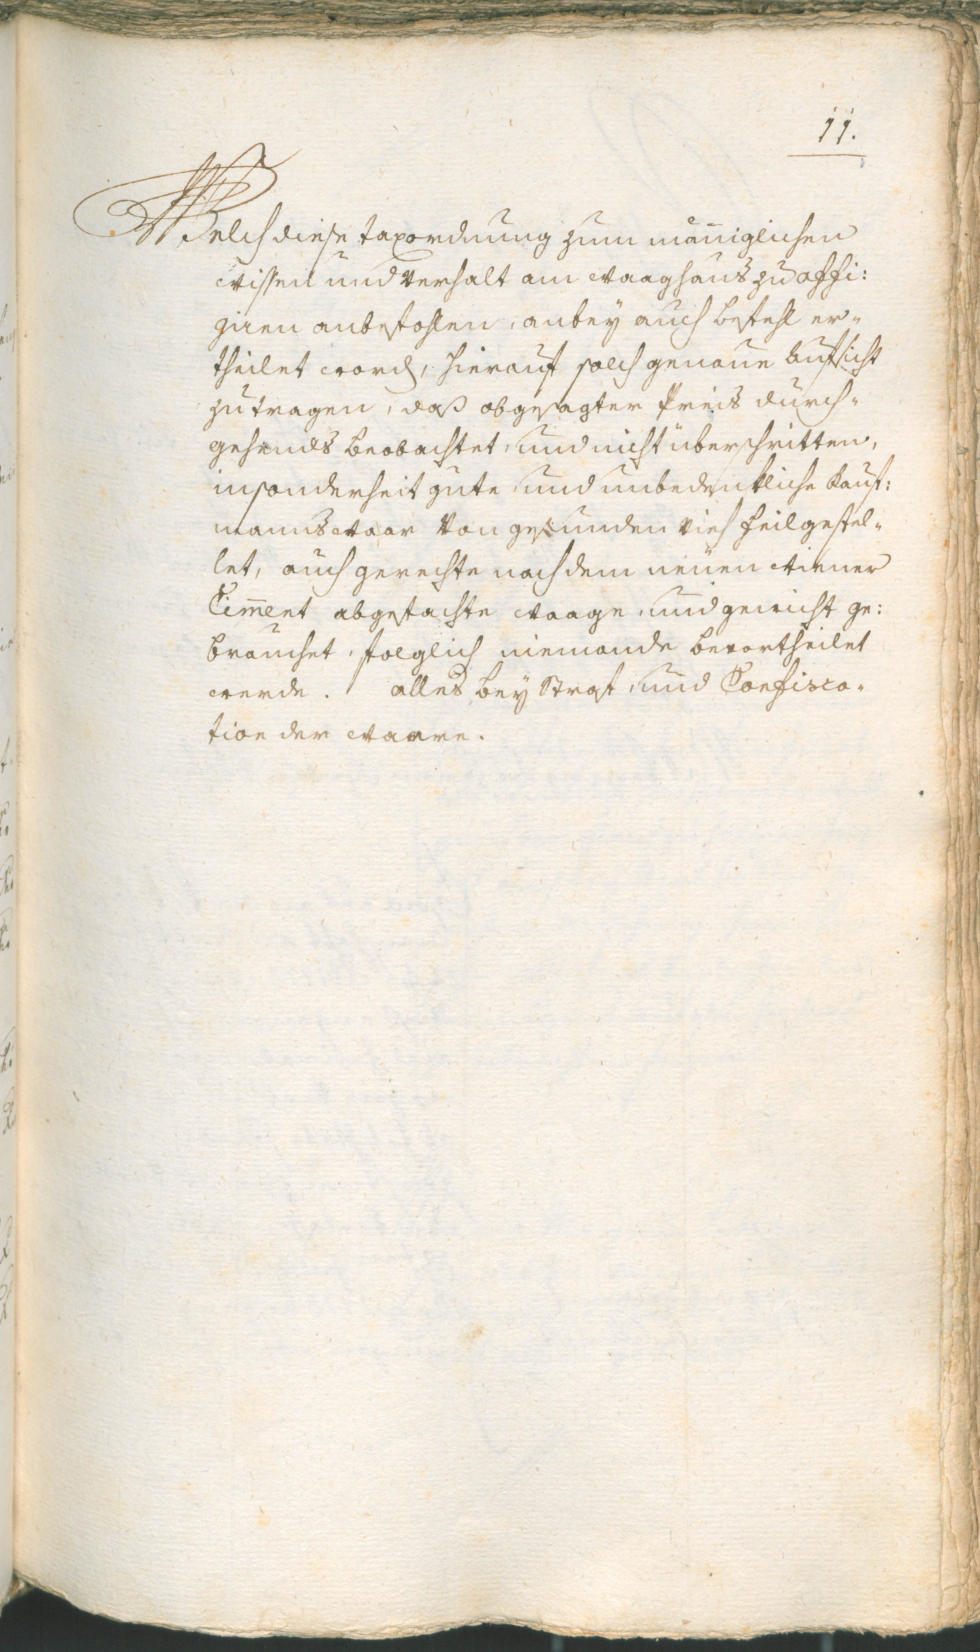 11.
Welch diese taxordnung zum mäniglichen
wissen und verhalt am waaghaus zu affi:
giren anbefohlen, anbey auch befehl er-
theilet word, hierauf solch genaue aufsicht
zutragen, daß obgesagter Preis durch-
gehends beobachtet, und nicht überschritten,
insonderheit gute und unbedenkliche Kauf:
manswaar von gesunden vieh feilgestel-
let, auch gerechte nach dem neüen wiener
Ciment abgefachte waage, und gewicht ge:
brauchet, folglich niemande bevortheilet
werde. alles bey Straf, und Confisca-
tion der waare.